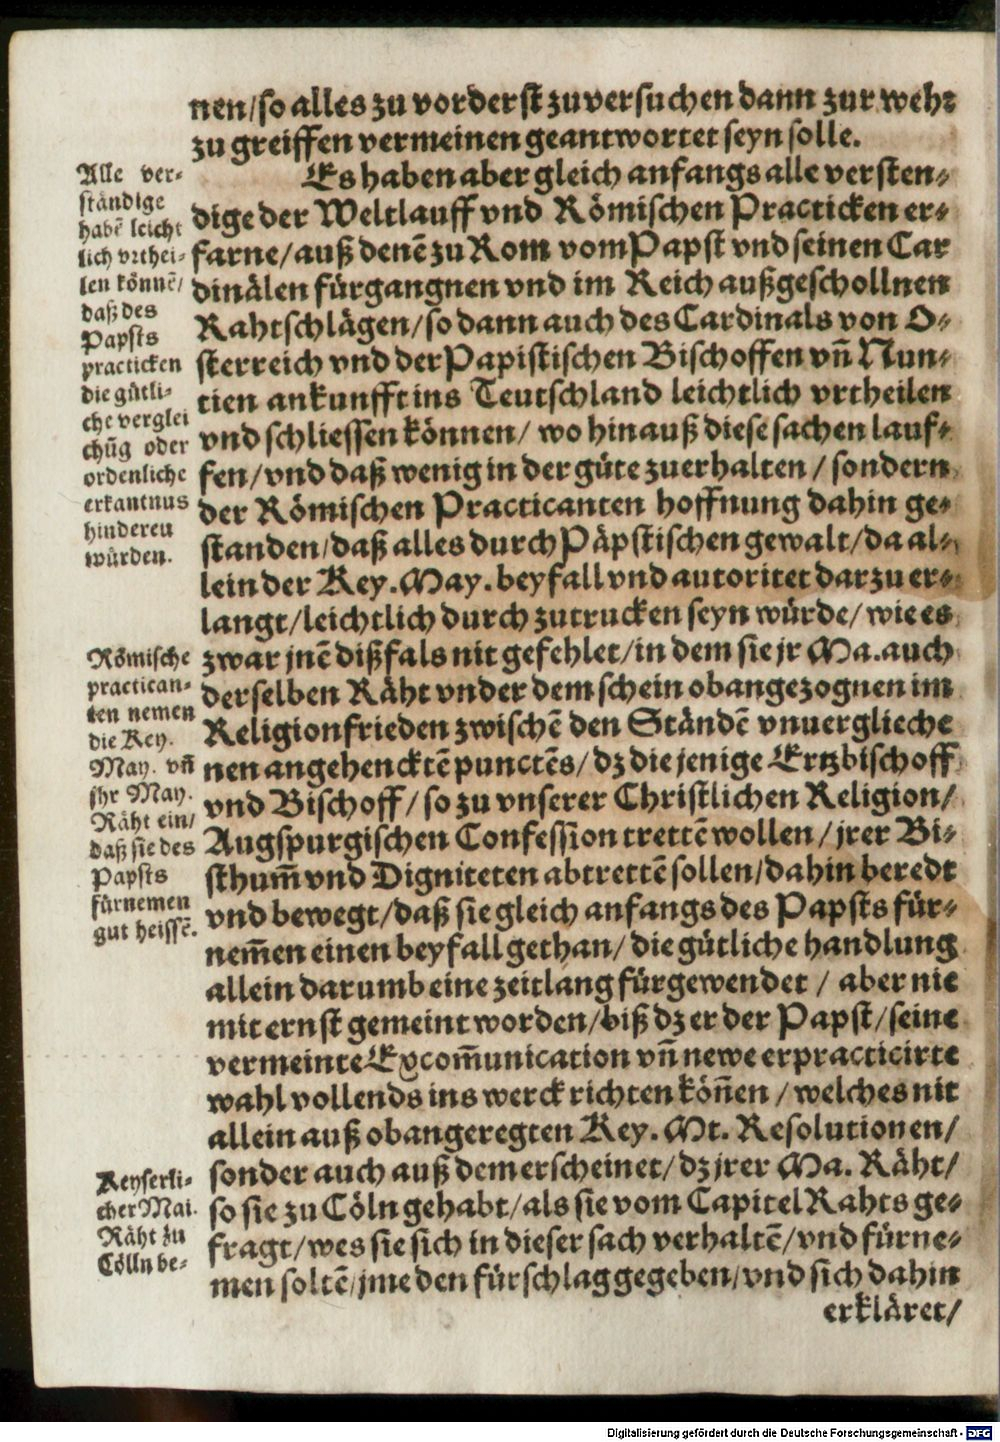 nen/so alles zu vorderst zuversuchen dann zur wehr
zu greiffen vermeinen geantwortet seyn solle.
Es haben aber gleich anfangs alle versten-
dige der Weltlauff vnd Römischen Practicken er-
farne/auß denē zu Rom vom Papst vnd seinen Car
dinälen fürgangnen vnd im Reich außgeschollnen
Rahtschlägen/so dann auch des Cardinals von O-
sterreich vnd der Papistischen Bischoffen vn̄ Nun-
tien ankunfft ins Teutschland leichtlich vrtheilen
vnd schliessen können/ wo hinauß diese sachen lauf-
fen/vnd daß wenig in der güte zuerhalten / sondern
der Römischen Practicanten hoffnung dahin ge-
standen/daß alles durch Päpstischen gewalt/da al-
lein der Key.May.beyfall vnd autoritet darzu er-
langt/leichtlich durch zutrucken seyn würde/wie es
zwar jnē dißfals nit gefehlet/in dem sie jr Ma.auch
derselben Räht vnder dem schein obangezognen im
Religionfrieden zwischē den Ständē vnuerglieche
nen angehencktē punctēs/dz die jenige Ertzbischoff
vnd Bischoff/so zu vnserer Christlichen Religion/
Augspurgischen Confession trettē wollen/jrer Bi-
sthum̄ vnd Digniteten abtrettē sollen/dahin beredt
vnd bewegt/daß sie gleich anfangs des Papsts für-
nem̄en einen beyfall gethan/die gütliche handlung
allein darumb eine zeitlang fürgewendet / aber nie
mit ernst gemeint worden/biß dz er der Papst/seine
vermeinte Excom̄unication vn̄ newe erpracticirte
wahl vollends ins werck richten kön̄en / welches nit
allein auß obangeregten Key. Mt. Resolutionen/
sonder auch auß dem erscheinet/dz jrer Ma. Räht/
so sie zu Cöln gehabt/als sie vom Capitel Rahts ge-
fragt/wes sie sich in dieser sach verhaltē/vnd fürne-
men soltē/jme den fürschlag gegeben/vnd sich dahin
erkläret/
Alle ver-
ständige
habē leicht
lich vrthei-
len könnē/
daß des
Papsts
practicken
die gütli-
che verglei
chūg oder
ordenliche
erkantnus
hinderen
würden.
Römische
practican-
ten nemen
die Key.
May. vn̄
ihr May.
Räht ein/
daß sie des
Papsts
fürnemen
gut heissē.
Keyserli-
cher Mai.
Räht zu
Cölln be-
Digitalisierung gefördert durch die Deutsche Forschungsgemeinschaft - DFG